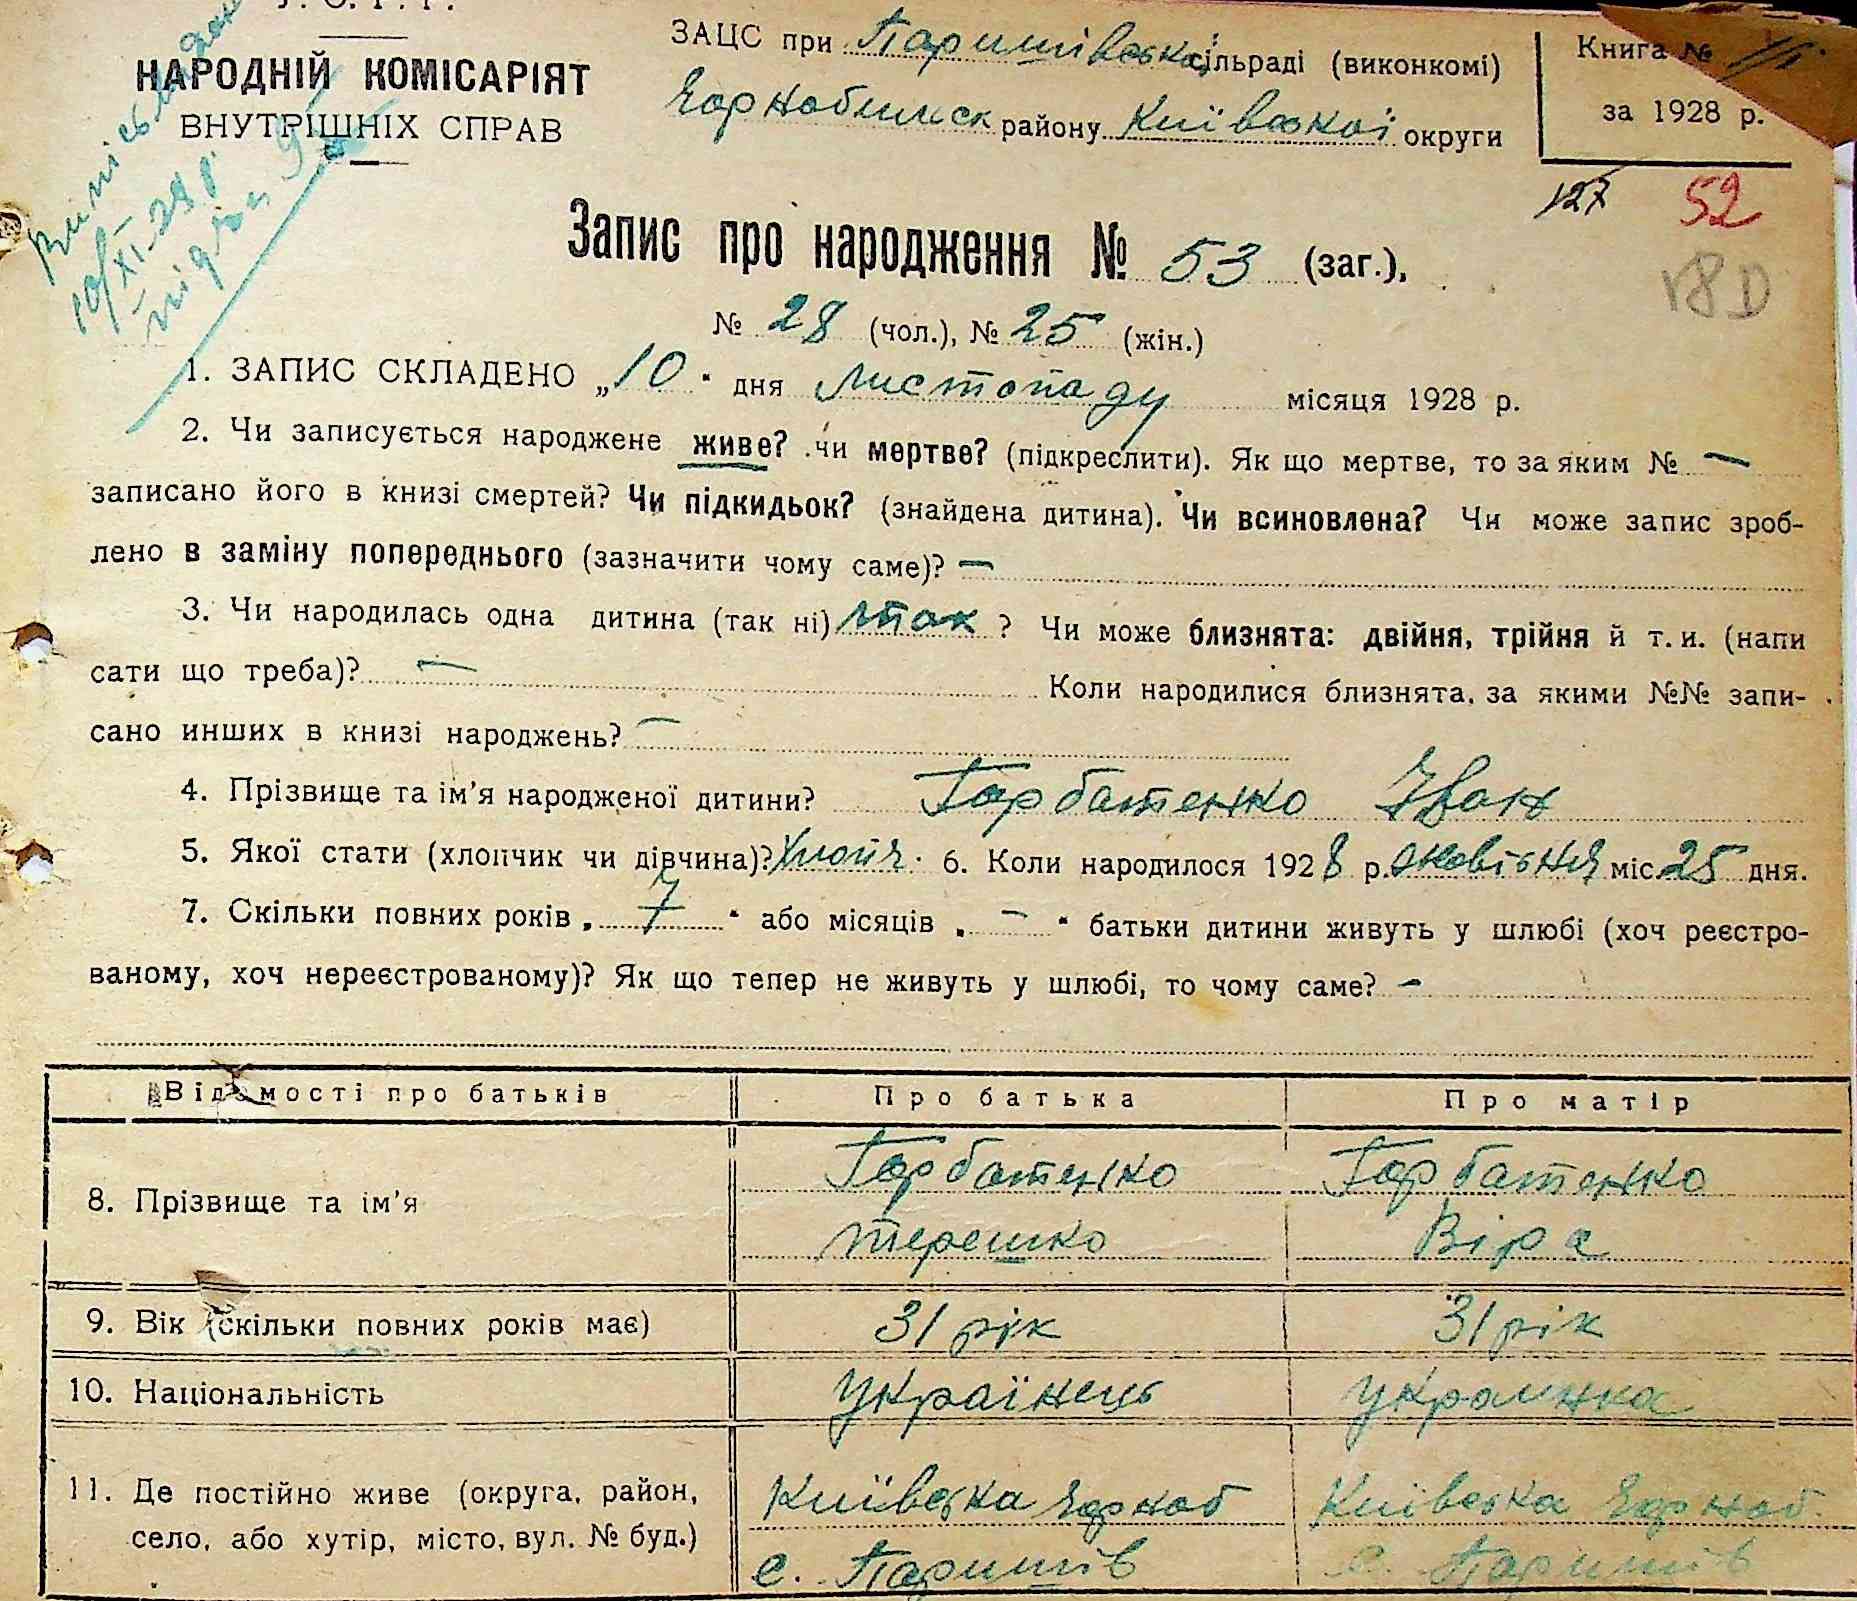 У. С. Р. Р.
НАРОДНІЙ КОМІСАРІЯТ
ВНУТРІШНІХ СПРАВ
ЗАЦС при Паришівській сільраді (виконкомі)
Чорнобильск району Київської округи
Книга №
за 1928 р.
127 52
Запис про народження № 53 (заг.),
№ 28 (чол.), № 25 (жін.)
1. ЗАПИС СКЛАДЕНО „10“ дня Листопаду місяця 1928 р.
2. Чи записується народжене живе? чи мертве? (підкреслити). Як що мертве, то за яким № —
записано його в книзі смертей? Чи підкидьок? (знайдена дитина). Чи всиновлена? Чи може запис зроб-
лено в заміну попереднього (зазначити чому саме)? —
3. Чи народилась одна дитина (так ні) так ? Чи може близнята: двійня, трійня й т. и. (напи
сати що треба)? — Коли народилися близнята, за якими №№ запи-
сано инших в книзі народжень? —
4. Прізвище та ім'я народженої дитини? Горбатенко Іван
5. Якої статі (хлопчик чи дівчина)? Хлопч. 6. Коли народилося 1928 р. Жовтня міс. 25 дня.
7. Скільки повних років „ 7 “ або місяців „ — “ батьки дитини живуть у шлюбі (хоч реєстро-
ваному, хоч нереєстрованому)? Як що тепер не живуть у шлюбі, то чому саме? —
Відомості про батьків Про батька Про матір
8. Прізвище та ім'я Горбатенко Терешко Горбатенко Віра
9. Вік (скільки повних років має) 31 рік 31 рік
10. Національність Українець Украинка
11. Де постійно живе (округа, район, Київська Чорноб Київська Чорноб.
село, або хутір, місто, вул. № буд.) с. Паришів с. Паришів